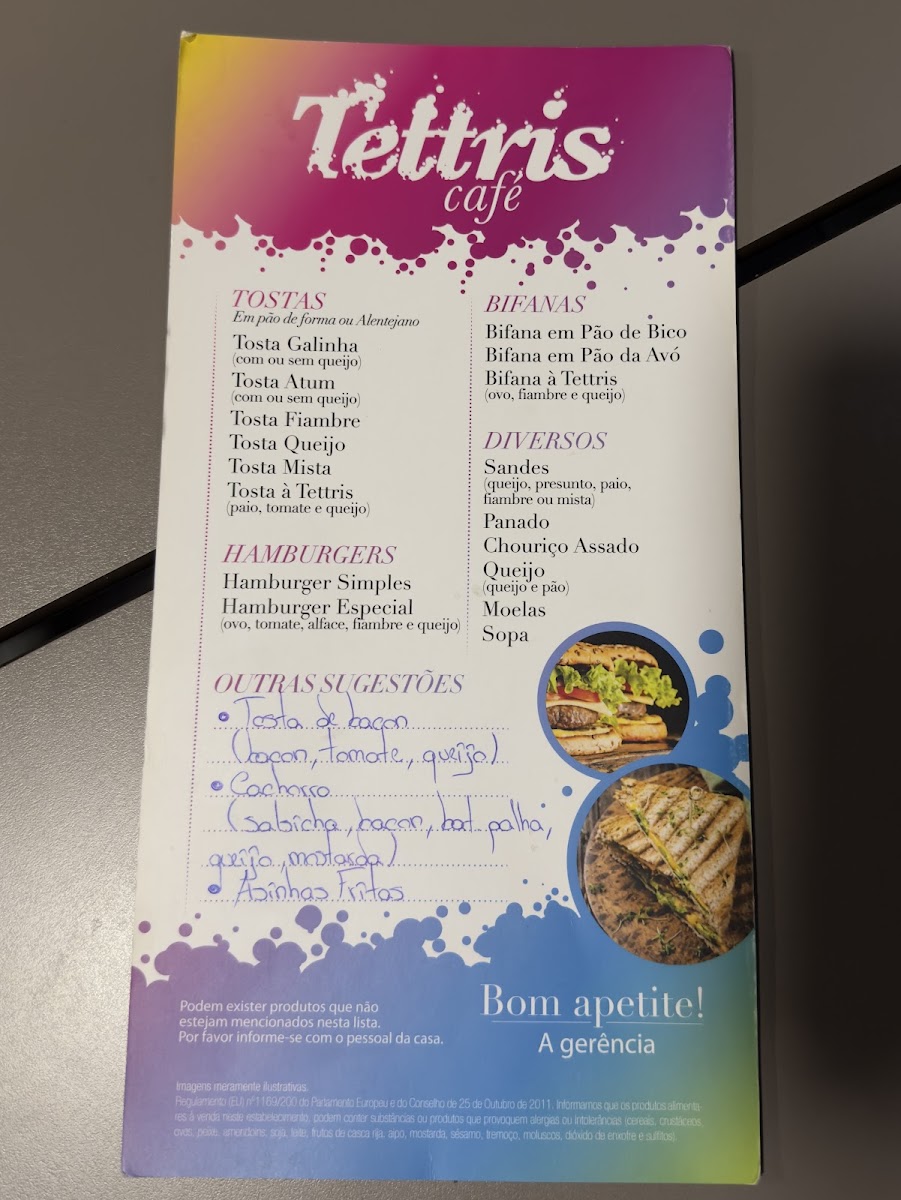 Tettris
café
TOSTAS
Em pão de forma ou Alentejano
Tosta Galinha
(com ou sem queijo)
Tosta Atum
(com ou sem queijo)
Tosta Fiambre
Tosta Queijo
Tosta Mista
Tosta à Tettris
(paio, tomate e queijo)
HAMBURGERS
Hamburger Simples
Hamburger Especial
(ovo, tomate, alface, fiambre e queijo)
BIFANAS
Bifana em Pão de Bico
Bifana em Pão da Avó
Bifana à Tettris
(ovo, fiambre e queijo)
DIVERSOS
Sandes
(queijo, presunto, paio,
fiambre ou mista)
Panado
Chouriço Assado
Queijo
(queijo e pão)
Moelas
Sopa
OUTRAS SUGESTÕES
• Tosta de bacon
(bacon, tomate, queijo)
• Cachorro
(salsicha, bacon, bat palha,
queijo, mostarda)
• Asinhas Fritas
Podem exister produtos que não
estejam mencionados nesta lista.
Por favor informe-se com o pessoal da casa.
Bom apetite!
A gerência
Imagens meramente ilustrativas.
Regulamento (EU) nº1169/200 do Parlamento Europeu e do Conselho de 25 de Outubro de 2011. Informamos que os produtos alimenta-
res à venda neste estabelecimento, podem conter substâncias ou produtos que provoquem alergias ou intolerâncias (cereais, crustáceos,
ovos, peixe, amendoins, soja, leite, frutos de casca rija, aipo, mostarda, sésamo, tremoço, moluscos, dióxido de enxofre e sulfitos).